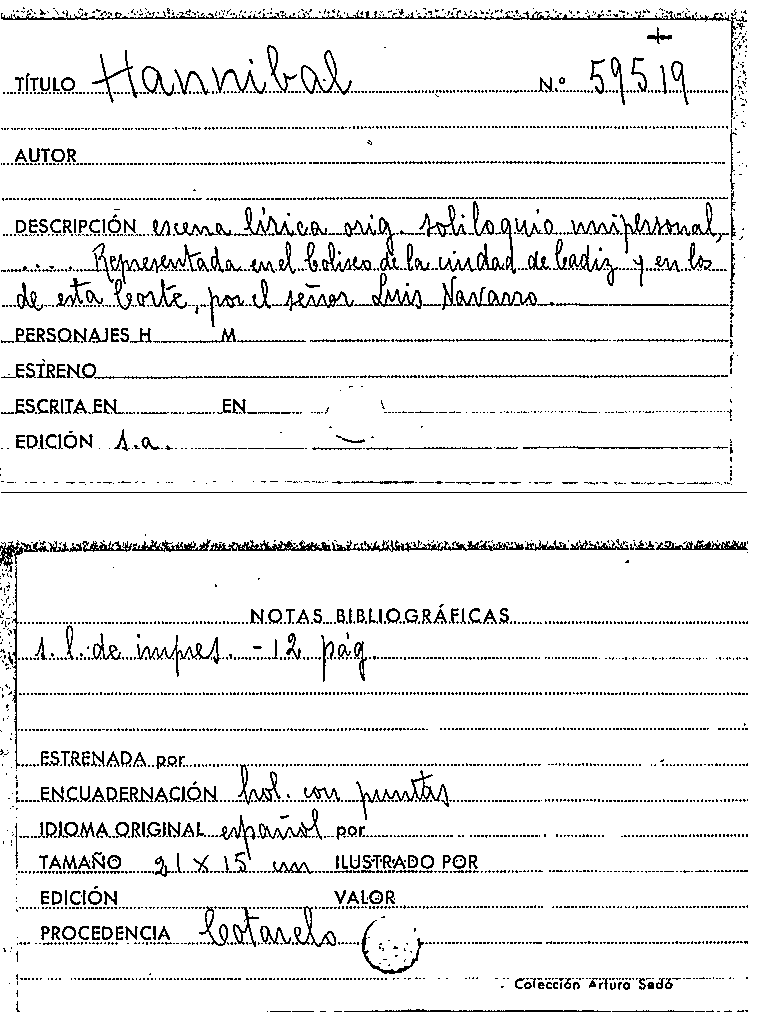 +
TÍTULO Hannibal N.º 59519
AUTOR
DESCRIPCIÓN escena lírica orig. soliloquio unipersonal,
.... Representada en el Coliseo de la ciudad de Cadiz y en los
de esta Corte, por el señor Luis Navarro.
PERSONAJES H M
ESTRENO
ESCRITA EN EN
EDICIÓN s.a.
NOTAS BIBLIOGRÁFICAS
s. l. de impres. - 12 pág.
ESTRENADA por
ENCUADERNACIÓN hol. con puntas
IDIOMA ORIGINAL español por
TAMAÑO 21 x 15 cm ILUSTRADO POR
EDICIÓN VALOR
PROCEDENCIA Cotarelo
Colección Arturo Sedó